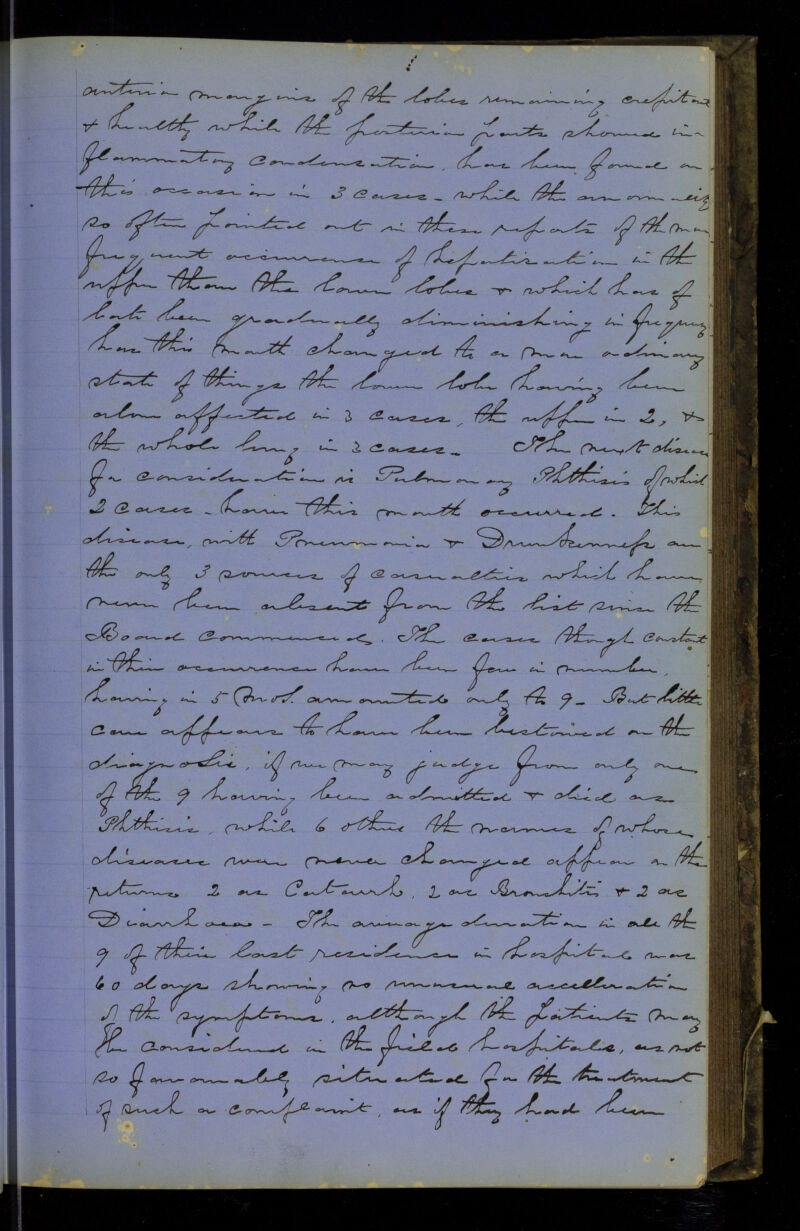 anterior margins of the lobes remaining crepitant
& healthy while the posterior parts showed in-
flammatory condensation, has been found on
this occasion in 3 cases - while the anomaly
so often pointed out in these reports of the more
frequent occurrence of hepatisation in the
upper than the lower lobes & which has of
late been gradually diminishing in frequency
has this month changed to a more ordinary
state of things the lower lobe having been
alone affected in 3 cases, the upper in 2, &
the whole lung in 3 cases - The next disease
for consideration is Pulmonary Phthisis of which
2 cases - have this month occurred. This
disease, with Pneumonia & Drunkenness are
the only 3 sources of casualties which have
never been absent from the list since the
Board commenced. The cases though constant
in their occurrence have been few in number,
having in 5 Mos. amounted only to 9 - But little
care appears to have been bestowed on the
diagnosis, if we may judge from only one
of the 9 having been admitted & died as
Phthisis, while 6 others the names of whose
diseases were never changed appear on the
returns 2 as Catarrh, 2 as Bronchitis & 2 as
Diarrhoea - The average duration in all the
9 of their last residence in hospital was
60 days showing no unusual accelleration
of the symptoms, although the patients may
be considered in the field hospitals, as not
so favourably situated for the treatment
of such a complaint, as if they had been